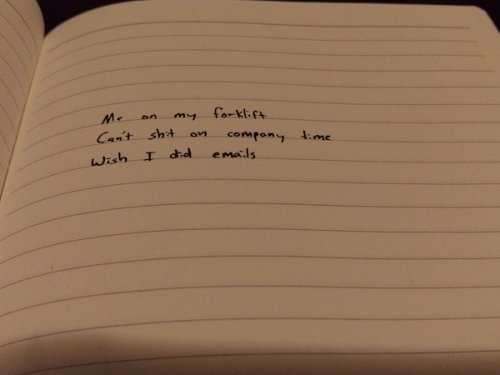 Me on my forklift
Can't shit on company time
Wish I did emails